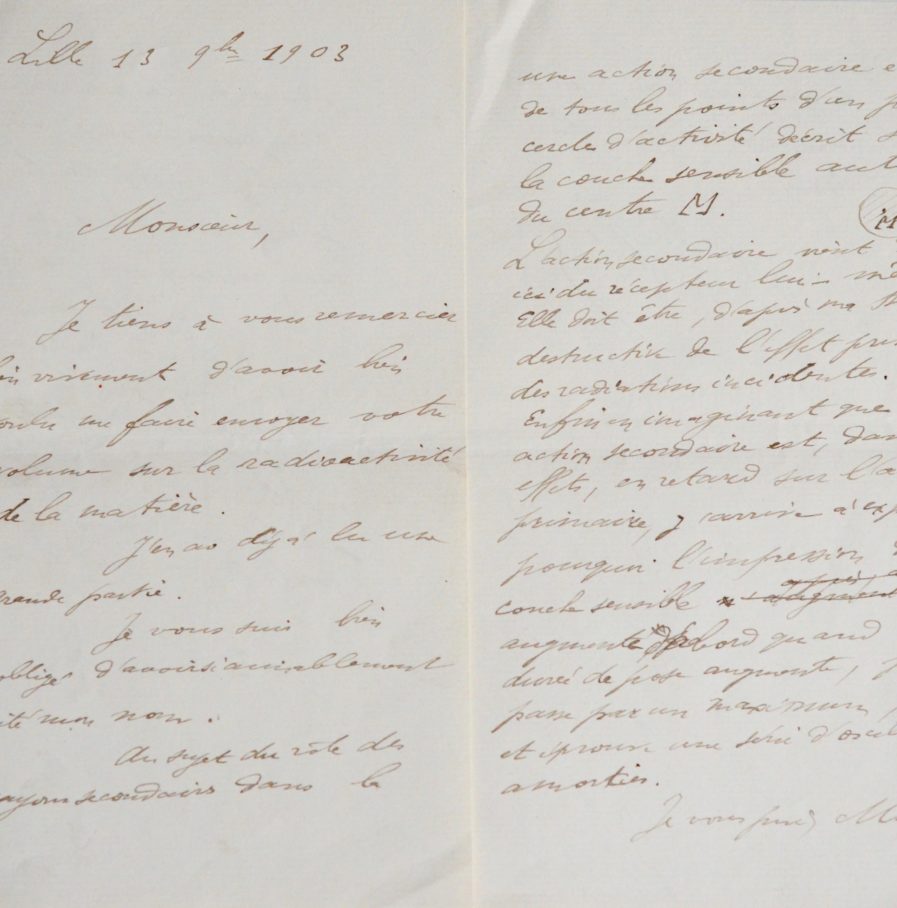 Lille 13 9bre 1903
Monsieur,
Je tiens à vous remercier
vivement d'avoir bien
me faire envoyer votre
volume sur la radioactivité
de la matière.
J'en ao déjà lu une
grande partie.
Je vous suis bien
obligé d'avoir si aimablement
cité mon nom.
Au sujet du rôle des
rayons secondaires dans la
une action secondaire e
de tous les points d'un p
cercle d'activité décrit s
la couche sensible aut
du centre M.
M
L'action secondaire vient
ici du récepteur lui-mê
Elle doit être, d'après ma
destructive de l'effet pri
des radiations incidentes.
Enfin en imaginant que
action secondaire est, dan
effets, en retard sur l'a
primaire, j'arrive à exp
pourquoi l'impression
couche sensible
augmente d'abord quand
durée de pose augmente, p
passe par un maximum,
et éprouve une série d'oscil
amorties.
Je vous prie, Mo